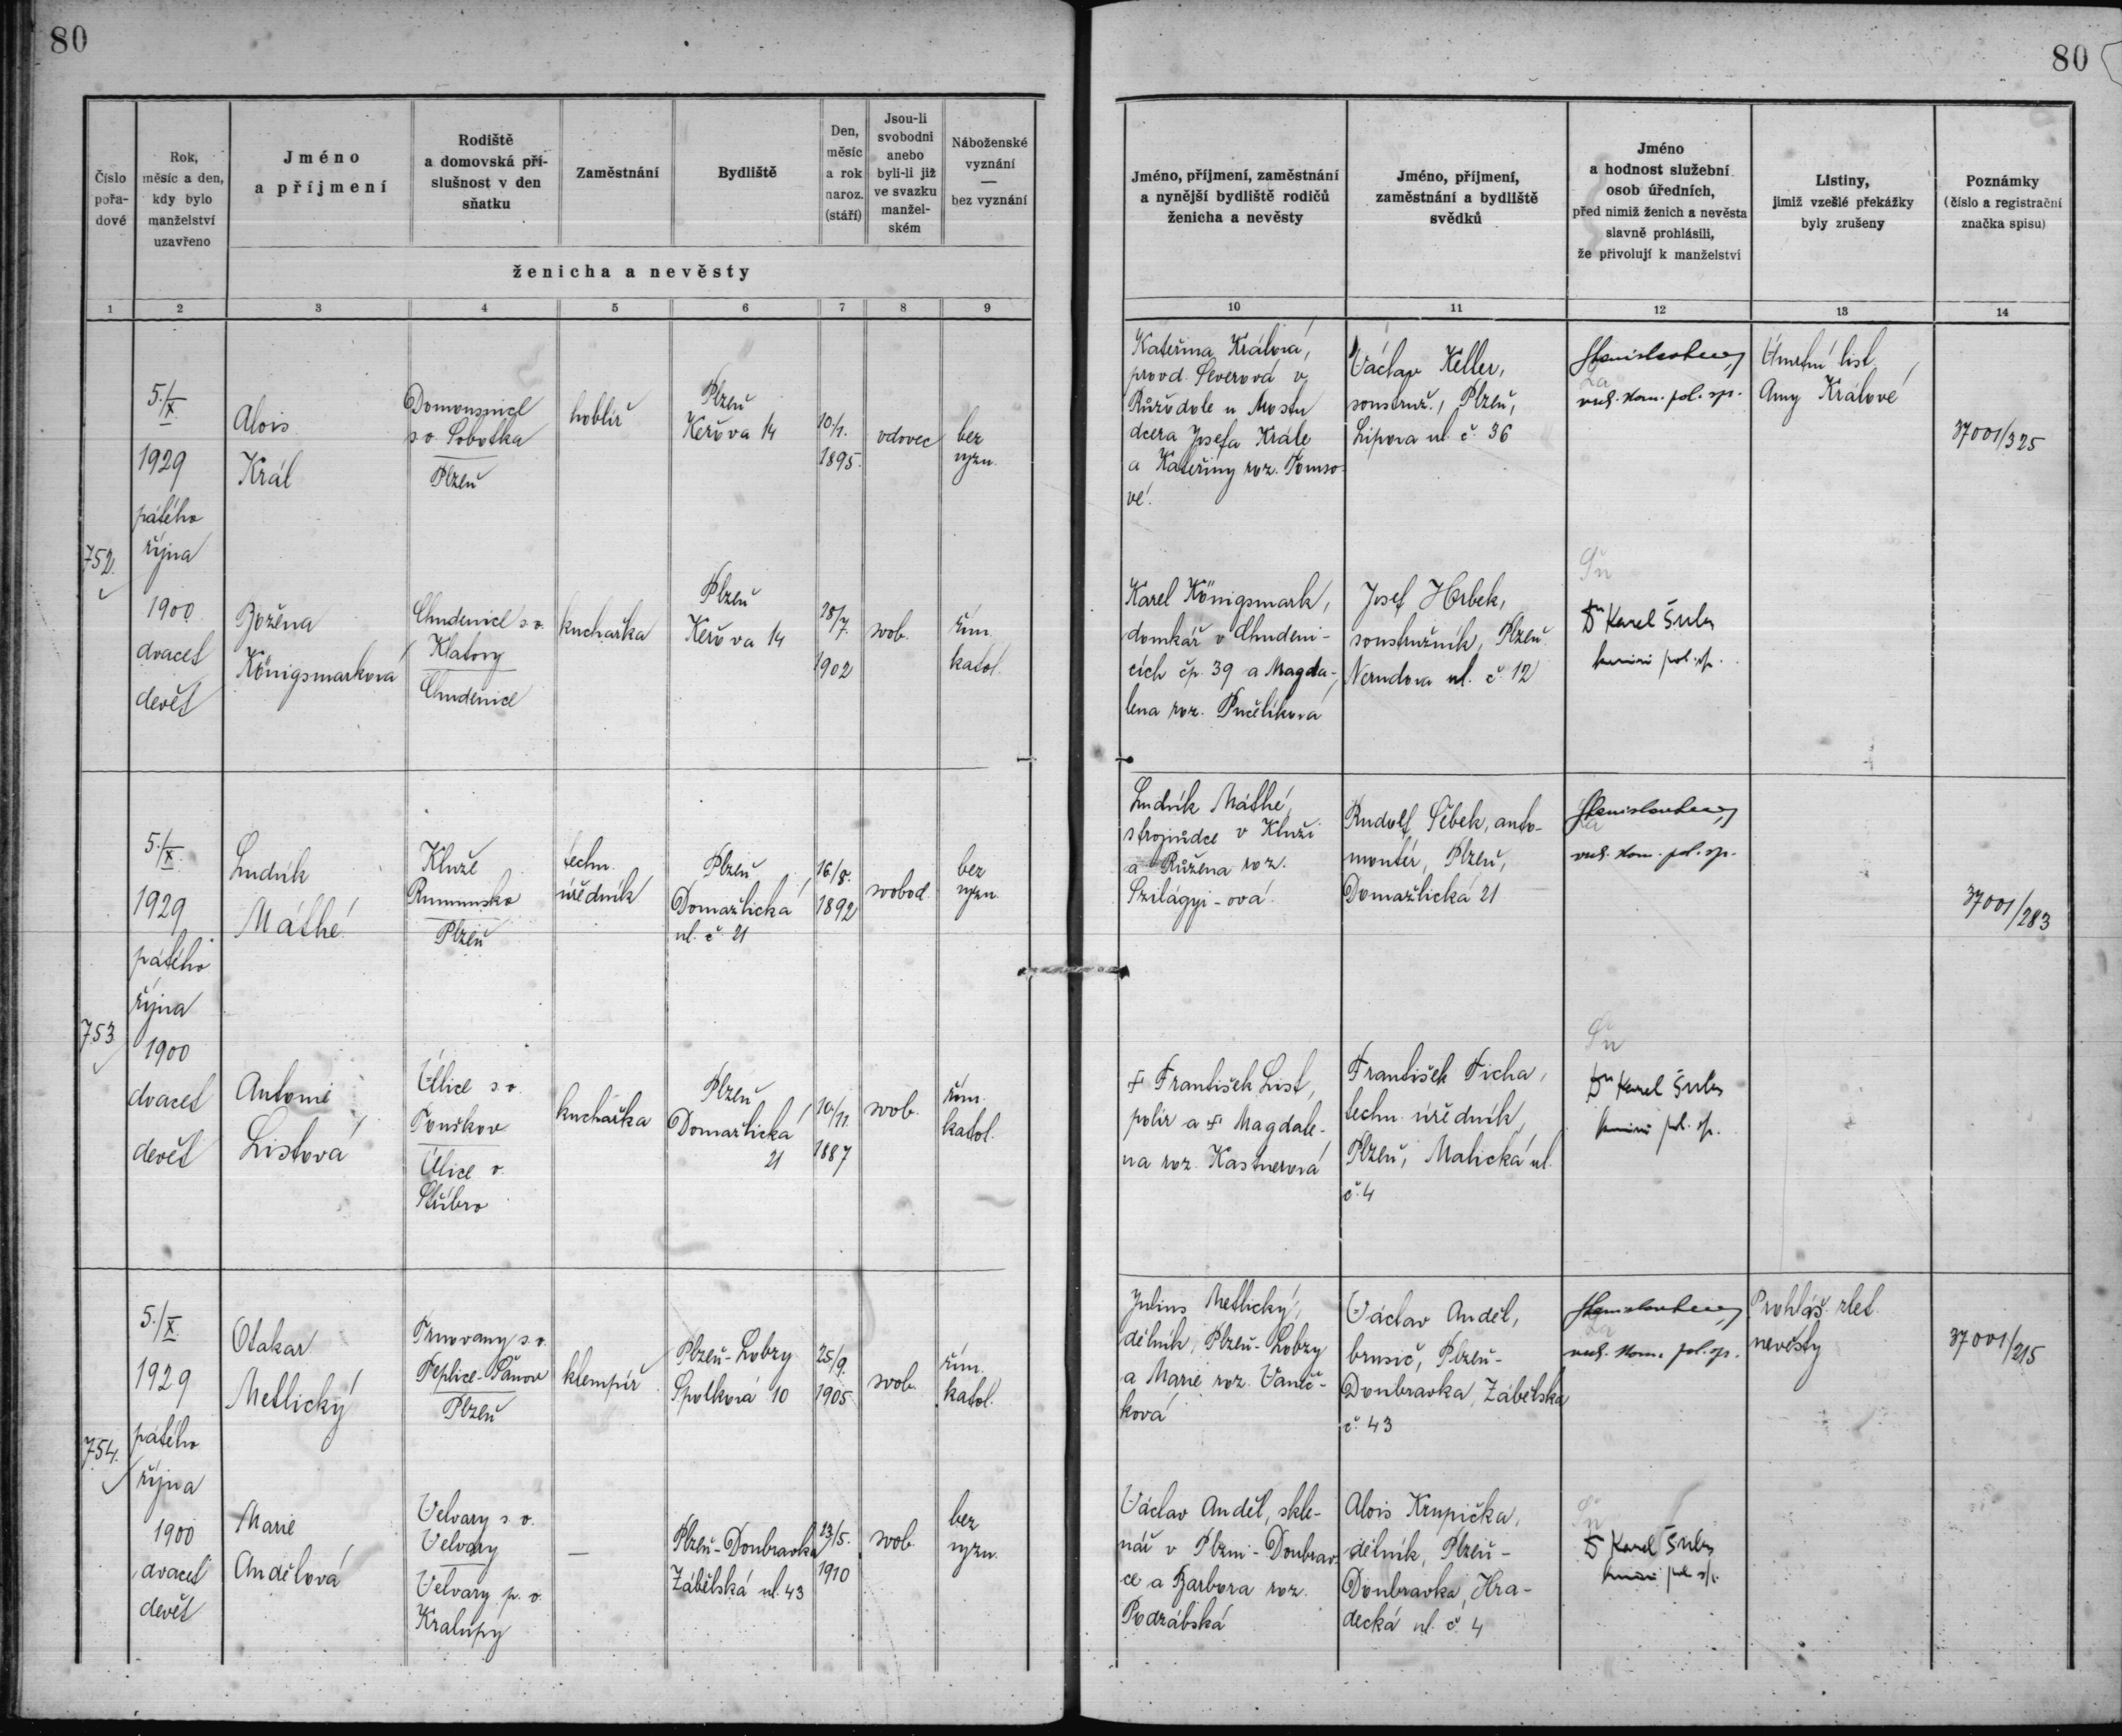 80
80
Číslo
pořa-
dové
Rok,
měsíc a den,
kdy bylo
manželství
uzavřeno
Jméno
a příjmení
Rodiště
a domovská pří-
slušnost v den
sňatku
Zaměstnání
Bydliště
Den,
měsíc
a rok
naroz.
(stáří)
Jsou-li
svobodni
anebo
byli-li již
ve svazku
manžel-
ském
Náboženské
vyznání
—
bez vyznání
ženicha a nevěsty
Jméno, příjmení, zaměstnání
a nynější bydliště rodičů
ženicha a nevěsty
Jméno, příjmení,
zaměstnání a bydliště
svědků
Jméno
a hodnost služební
osob úředních,
před nimiž ženich a nevěsta
slavně prohlásili,
že přivolují k manželství
Listiny,
jimiž vzešlé překážky
byly zrušeny
Poznámky
(číslo a registrační
značka spisu)
1 2 3 4 5 6 7 8 9 10 11 12 13 14
752.
5./X.
1929
pátého
října
1900
dvacet
devět
Alois
Král
Domousnice
s.o. Sobotka
Plzeň
hoblíř
Plzeň
Keřova 14
10/1.
1895.
vdovec
bez
vyzn.
Kateřina Králová,
provd. Severová v
Růžodole u Mostu
dcera Josefa Krále
a Kateřiny roz. Tomso-
vé.
Václav Keller,
soustruž., Plzeň,
Lipova ul. č. 36
Za
vrch. kom. pol. spr.
Úmrtní list
Anny Králové
37001/325
Božena
Königsmarková
Chudenice s.o.
Klatovy
Chudenice
kuchařka
Plzeň
Keřova 14
28/7.
1902
svob.
řím.
katol.
Karel Königsmark,
domkář v Chudeni-
cích čp. 39 a Magda-
lena roz. Pučelíková
Josef Hrbek,
soustružník, Plzeň
Nerudova ul. č. 12
Šu
Dr Karel Šula
pol. spr.
753
5./X.
1929
pátého
října
1900
dvacet
devět
Ludvík
Máthé
Kluže
Rumunsko
Plzeň
techn.
úředník
Plzeň
Domažlická
ul. č. 21
16/8.
1892
svobod.
bez
vyzn.
Ludvík Máthé,
strojvůdce v Kluži
a Růžena roz.
Szilágyi-ová
Rudolf Šebek, auto-
montér, Plzeň,
Domažlická 21
Za
vrch. kom. pol. spr.
37001/283
Antonie
Listová
Úlice s.o.
Touškov
Úlice o.
Stříbro
kuchařka
Plzeň
Domažlická
21
10/11.
1887
svob.
řím.
katol.
† František List,
polír a † Magdale-
na roz. Kastnerová
František Ticha,
techn. úředník,
Plzeň, Malická ul.
č. 4
Šu
Dr Karel Šula
pol. spr.
754.
5./X.
1929
pátého
října
1900
dvacet
devět
Otakar
Metlický
Trnovany s.o.
Teplice-Šanov
Plzeň
klempíř
Plzeň-Lobzy
Spolková 10
25/9.
1905
svob.
řím.
katol.
Julius Metlický,
dělník, Plzeň-Lobzy
a Marie roz. Vaníč-
ková
Václav Anděl,
brusič, Plzeň-
Doubravka, Zábělská
č. 43
Za
vrch. kom. pol. spr.
Prohláš. zlet.
nevěsty
37001/215
Marie
Andělová
Velvary s.o.
Velvary
Velvary p. o.
Kralupy
—
Plzeň-Doubravka
Zábělská ul. 43
23/5.
1910
svob.
bez
vyzn.
Václav Anděl, skle-
nář v Plzni-Doubrav-
ce a Barbora roz.
Podzábská
Alois Krupička,
dělník, Plzeň-
Doubravka, Hra-
decká ul. č. 4
Šu
Dr Karel Šula
pol. spr.